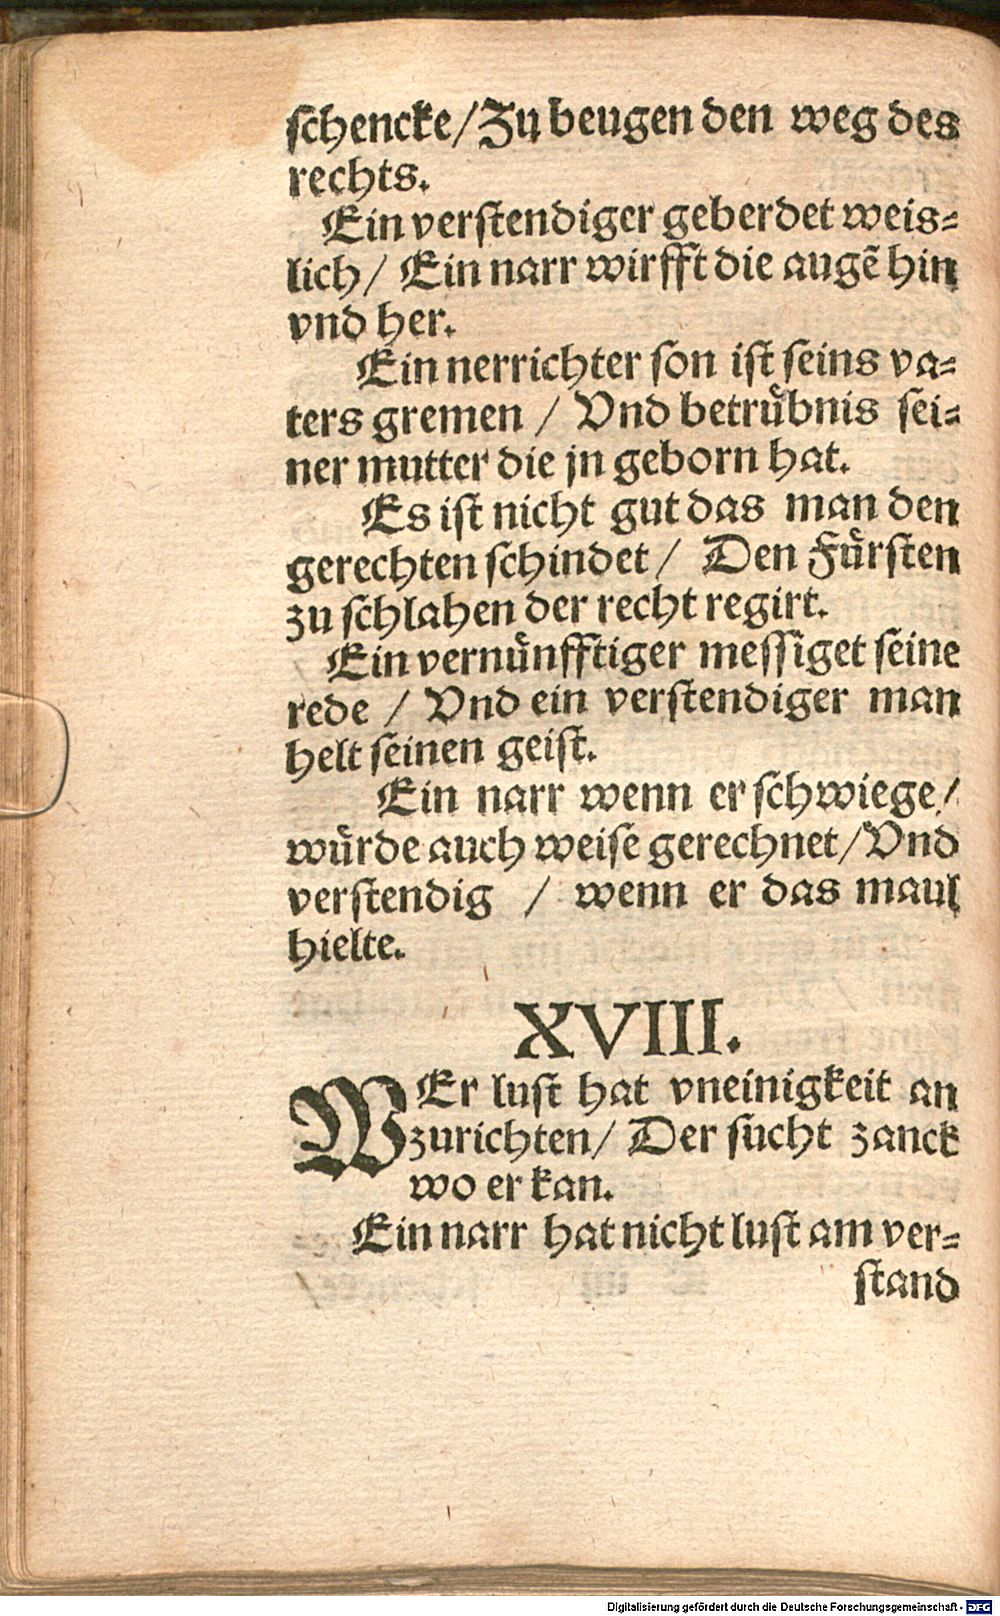 ſchencke/Zu beugen den weg des
rechts.
Ein verſtendiger geberdet weis⸗
lich/ Ein narr wirfft die augẽ hin
vnd her.
Ein nerrichter ſon iſt ſeins va⸗
ters gremen / Vnd betruͤbnis ſei⸗
ner mutter die jn geborn hat.
Es iſt nicht gut das man den
gerechten ſchindet / Den Fuͤrſten
zu ſchlahen der recht regirt.
Ein vernuͤnfftiger meſſiget ſeine
rede / Vnd ein verſtendiger man
helt ſeinen geiſt.
Ein narr wenn er ſchwiege/
wuͤrde auch weiſe gerechnet/Vnd
verſtendig / wenn er das maul
hielte.
XVIII.
WEr luſt hat vneinigkeit an
zurichten/ Der ſucht zanck
wo er kan.
Ein narr hat nicht luſt am ver⸗
ſtand
Digitalisierung gefördert durch die Deutsche Forschungsgemeinschaft - DFG